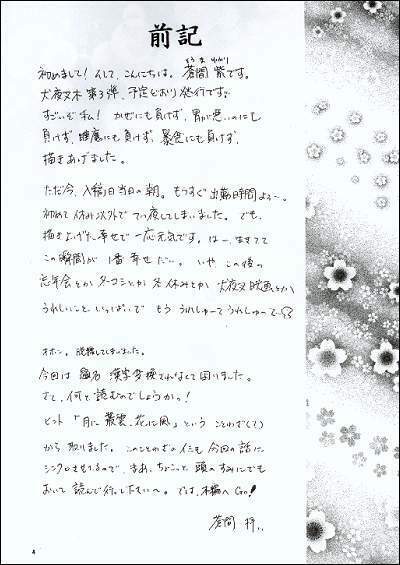 前記
初めまして！そして、こんにちは。蒼間 紫です。
犬夜叉本 第3弾、予定どおり発行です。
すごいぞ私！かぜにも負けず、胃が悪いのにも
負けず、睡魔にも負けず、暴食にも負けず、
描きあげました。
ただ今、入稿日当日の朝。もうすぐ出勤時間よ〜。
初めて休み以外で てつ夜してしまいました。でも、
描き上げた幸せで一応元気です。はー、生きてて
この瞬間が1番幸せだい。いや この後の
忘年会とか ターコミとか 冬休みとか 犬夜叉映画とか
うれしいこと いっぱいで もう うれしゅーて うれしゅーて
オホン。脱線してしまいました。
今回は 題名 漢字変換されなくて困りました。
さて、何と読むのでしょうかっ！
ヒント「月に叢雲、花に風」という ことわざ
から 取りました。このことわざのイミも 今回の話に
シンクロさせてるので、まあ、ちょこっと 頭のすみにでも
おいて 読んで行って下さいへ。では、本編へ Go!
蒼間 拝
4